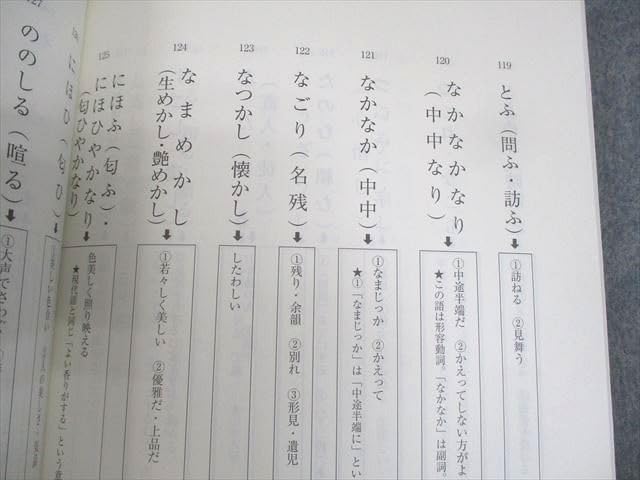 119
とふ（問ふ・訪ふ）➡
①訪ねる ②見舞う
120
なかなかなり
（中中なり）➡
①中途半端だ ②かえってしない方がよ
★この語は形容動詞。「なかなか」は副詞。
121
なかなか（中中）➡
①なまじっか ②かえって
★①「なまじっか」は「中途半端に」とい
122
なごり（名残）➡
①残り・余韻 ②別れ ③形見・遺児
123
なつかし（懐かし）➡
したわしい
124
なまめかし
（生めかし・艶めかし）➡
①若々しく美しい ②優雅だ・上品だ
125
にほふ（匂ふ）・
にほひやかなり
（匂ひやかなり）➡
色美しく照り映える
★現代語と同じ「よい香りがする」という意
126
にほひ（匂ひ）➡
127
ののしる（喧る）➡
①大声でさわぐ